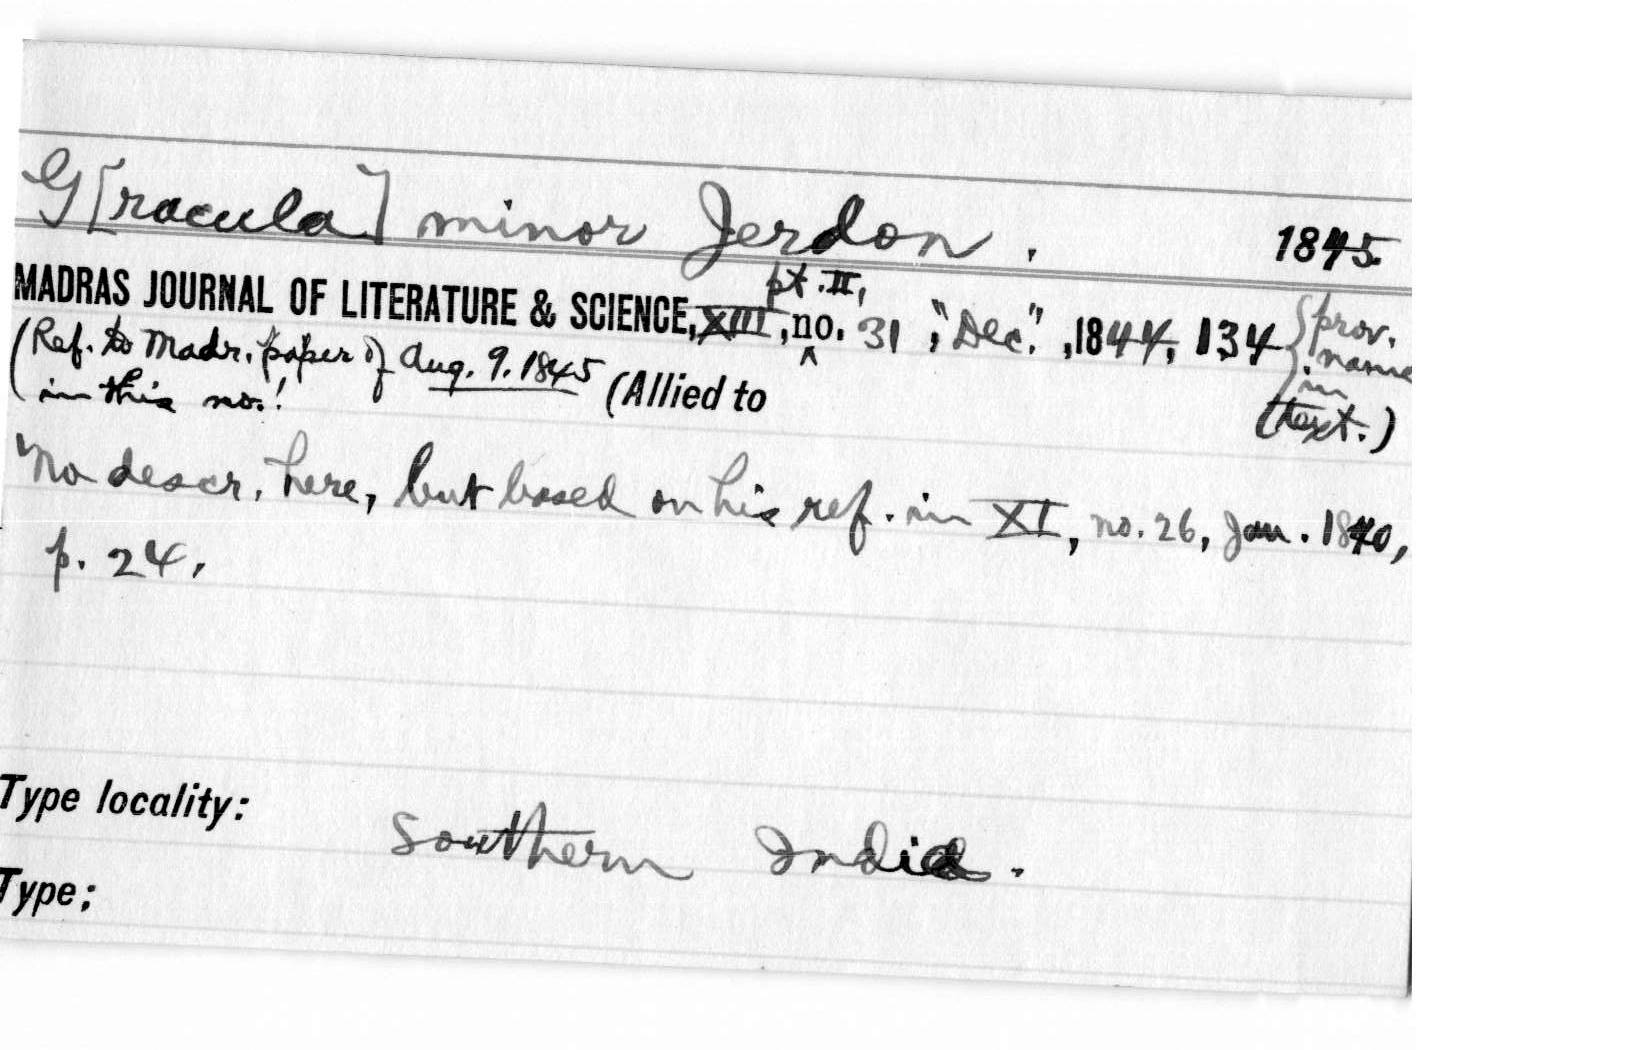 G[racula] minor Jerdon. 1845.
pt. II,
MADRAS JOURNAL OF LITERATURE & SCIENCE, XIII, no. 31, "Dec.", 1844, 134 {prov. name in (text.)
(Ref. to Madr. paper of Aug. 9. 1845
in this no.! (Allied to
No descr. here, but based on his ref. in XI, no. 26, Jan. 1840,
p. 24.
Type locality: Southern India.
Type: